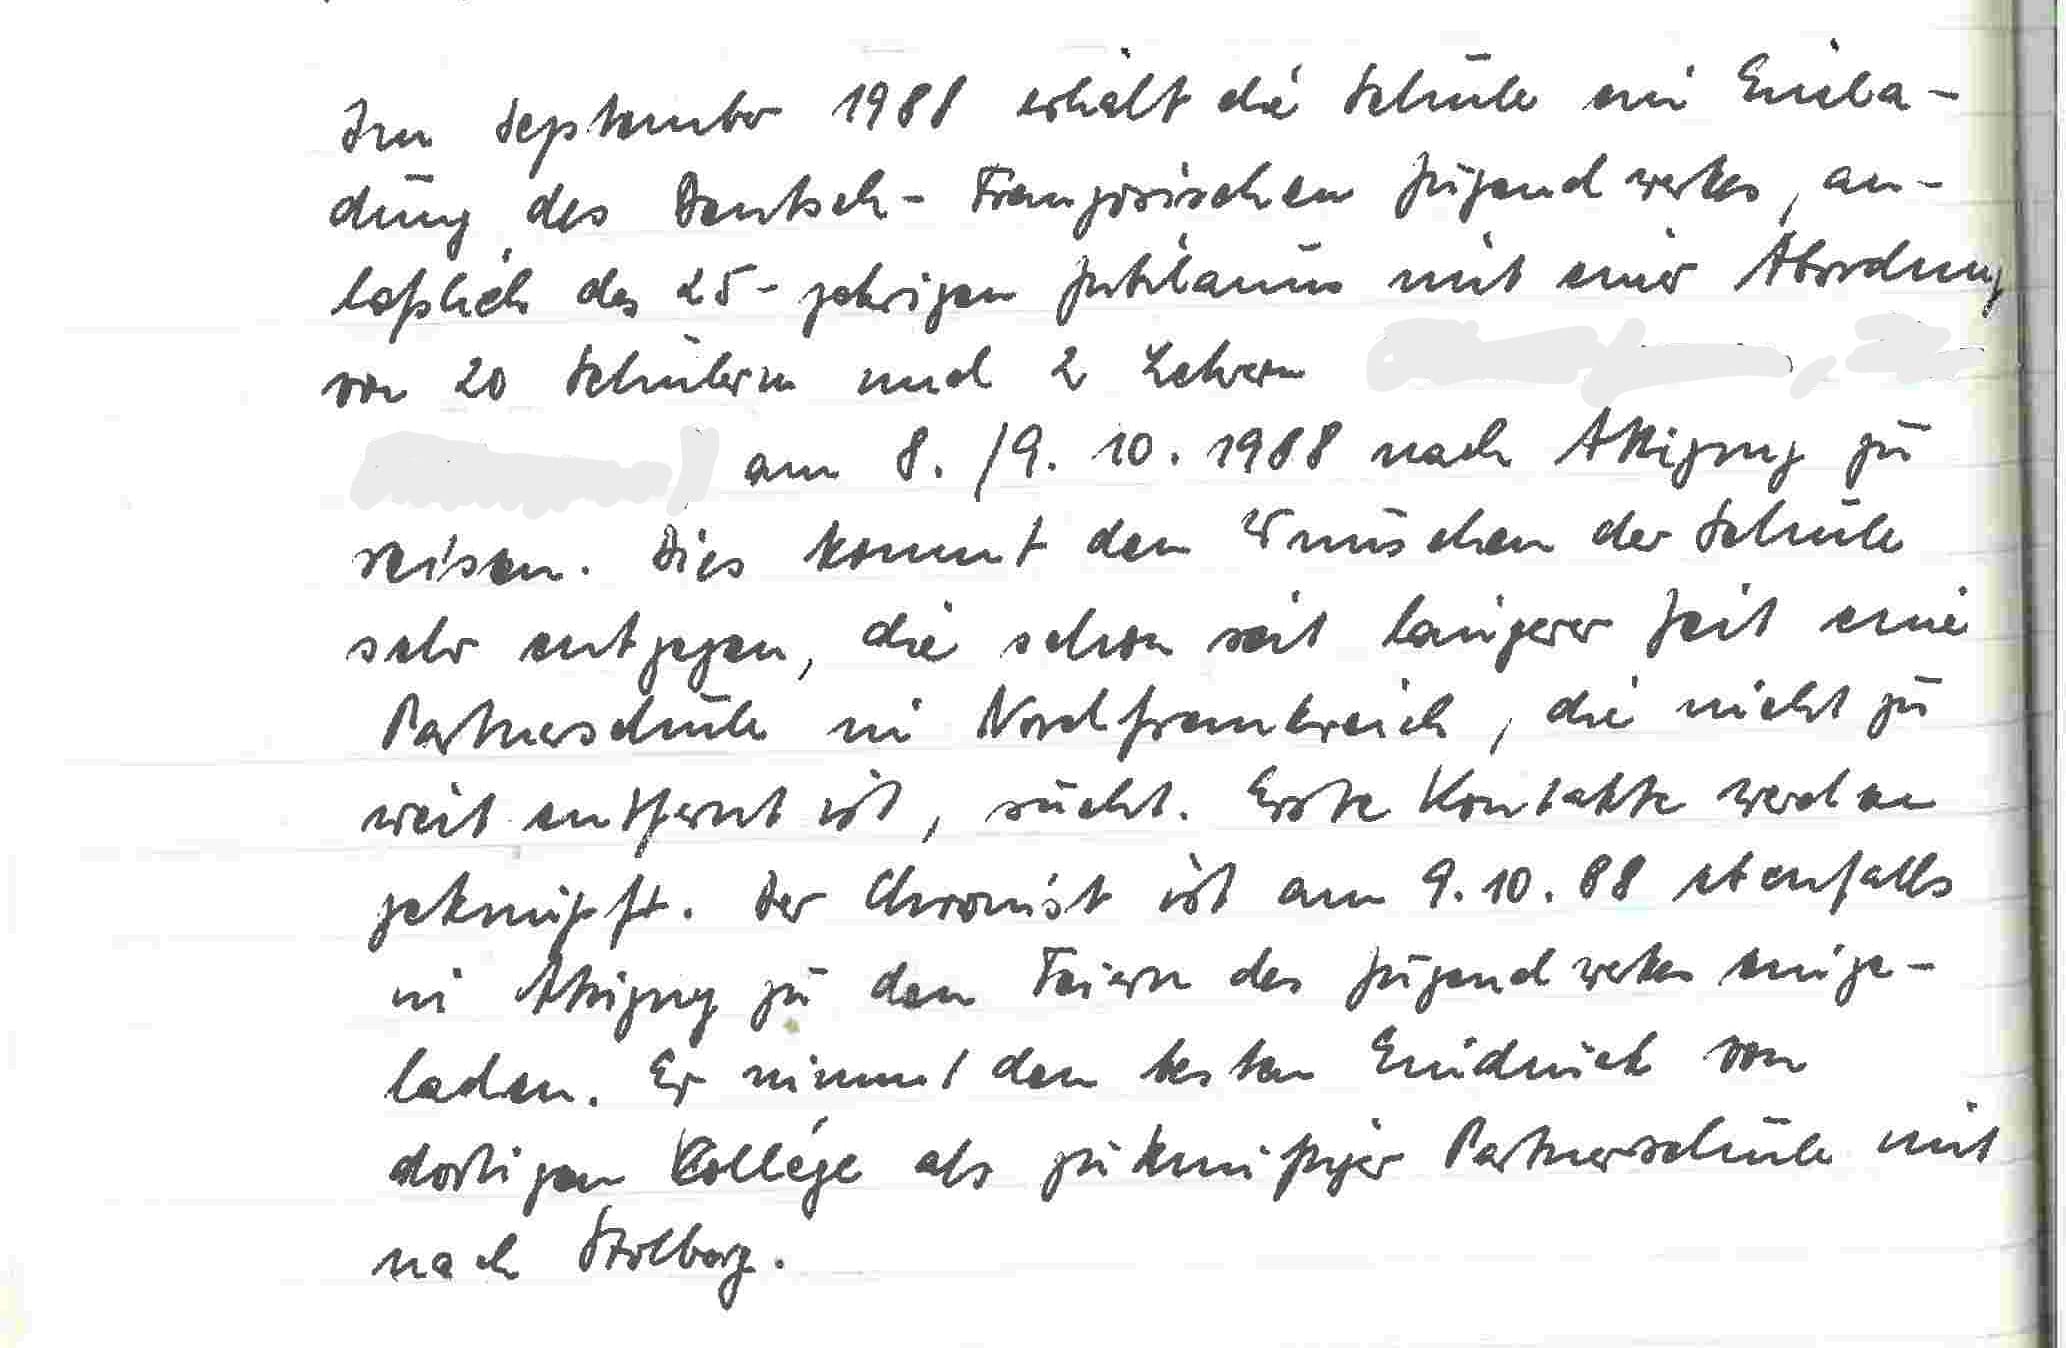 Im September 1988 erhält die Schule ein Einla-
dung des Deutsch-Französischen Jugendwerkes, an-
läßlich des 25-jährigen Jubiläums mit einer Abordnung
von 20 Schülern und 2 Lehrern
am 8./9. 10. 1988 nach Attigny zu
reisen. Dies kommt den Wünschen der Schule
sehr entgegen, die schon seit längerer Zeit eine
Partnerschule in Nordfrankreich, die nicht zu
weit entfernt ist, sucht. Erste Kontakte werden
geknüpft. Der Chronist ist am 9.10.88 ebenfalls
in Attigny zu den Feiern des Jugendwerkes einge-
laden. Er nimmt den besten Eindruck von
dortigen Collége als zukünftiger Partnerschule mit
nach Stolberg.